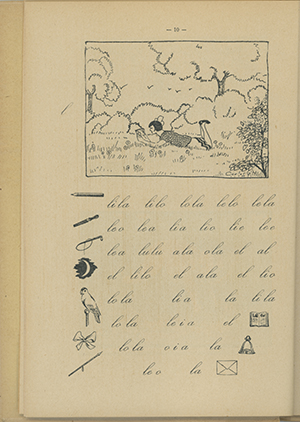 — 10 —
lila lilo lola lelo lela
leo lea lia lio lie lee
lea lulu ala ola el al
el lilo el ala el lio
lola lia la lila
lola leia el
lola oia la
leo la